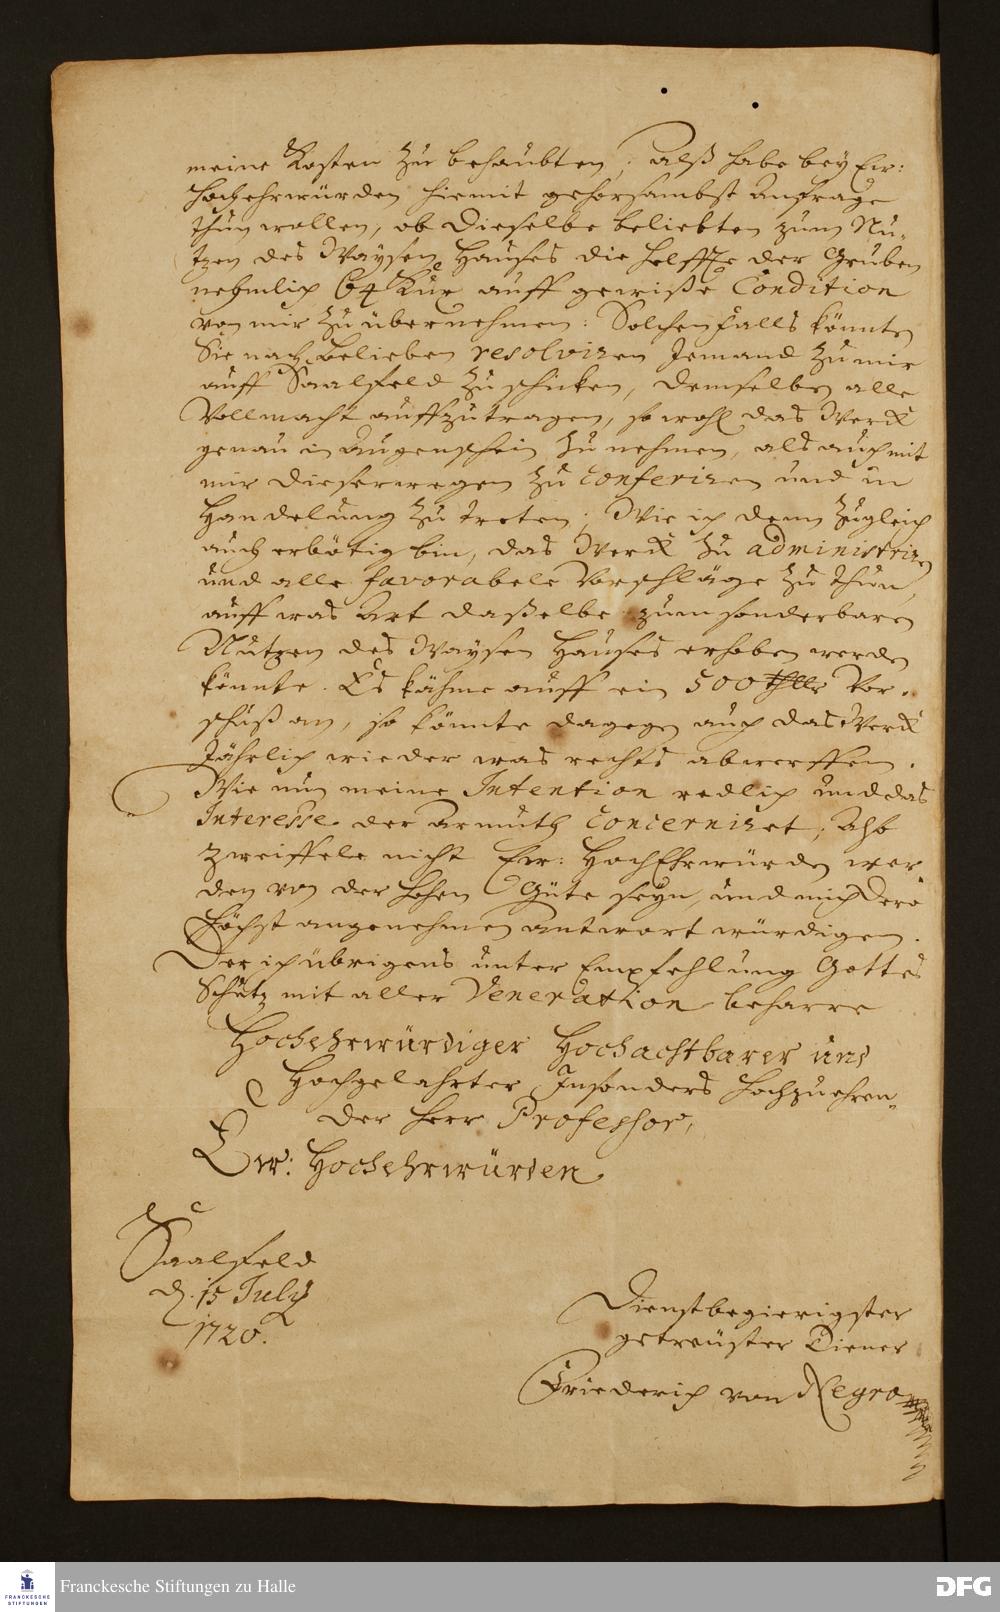 meine Kosten zu behaubten, alß habe bey Ew:
Hochehrwürden hiermit gehorsambst Anfrage
thun wollen, ob Dieselbe beliebten zum Nu-
tzen des Waysen Hauses die Helffte der Gruben
nehmlich 64 Kux auff gewiße Condition
von mir zu übernehmen: Solchenfalls könnten
Sie nach Belieben resolviren Jemand zu mir
auff Saalfeld zu schicken, demselben alle
Vollmacht auffzutragen, so wohl das Werck
genau in Augenschein zu nehmen, als auch mit
mir dieserwegen zu conferiren und in
Handelung zu treten; Wie ich denn zugleich
auch erbötig bin, das Werck zu administriren
und alle favorabele Vorschläge zu thun,
auff was Art daßelbe zum sonderbaren
Nutzen des Waysen Hauses erhoben werden
könnte. Es kähme auff ein 500 Thlr Vor-
schuß an, so könnte dagegen auch das Werck
Jährlich wieder was rechts abwerffen.
Wie nun meine Intention redlich und das
Interesse der Armuth concerniret; Alß
zweiffele nicht Ew: HochEhrwürden wer-
den von der hohen Güte seyn, und mich Dero
höchst angenehmen Antwort würdigen.
Der ich übrigens unter Empfehlung Gottes
Schutz mit aller Veneration beharre
Hochehrwürdiger Hochachtbarer und
Hochgelahrter, Insonders hochzuehren-
der Herr Professor,
Ew: Hochehrwürden
Saalfeld
d. 15 July
1720.
Dienstbegierigster
getreüster Diener
Friederich von Negro
Franckesche Stiftungen zu Halle
FRANCKESCHE
STIFTUNGEN
DFG